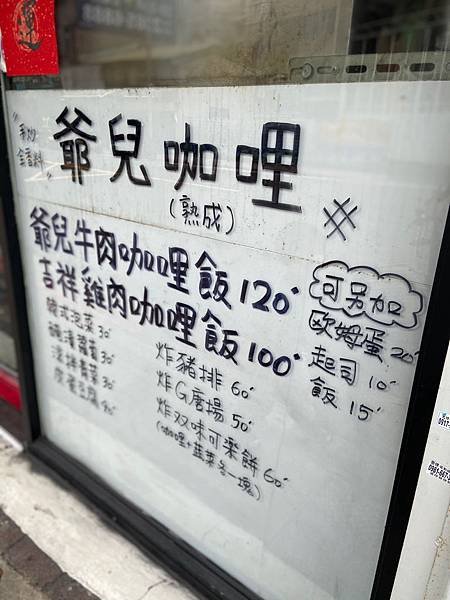 運
爺兒咖哩
(熟成)
爺兒牛肉咖哩飯 120
吉祥雞肉咖哩飯 100
韓式泡菜 30
涼拌青菜 30
皮蛋豆腐
炸豬排 60
炸G唐揚 50
炸双味可樂餅 60
(咖哩+蔬菜各一塊)
可另加
歐姆蛋 20
起司 10
飯 15